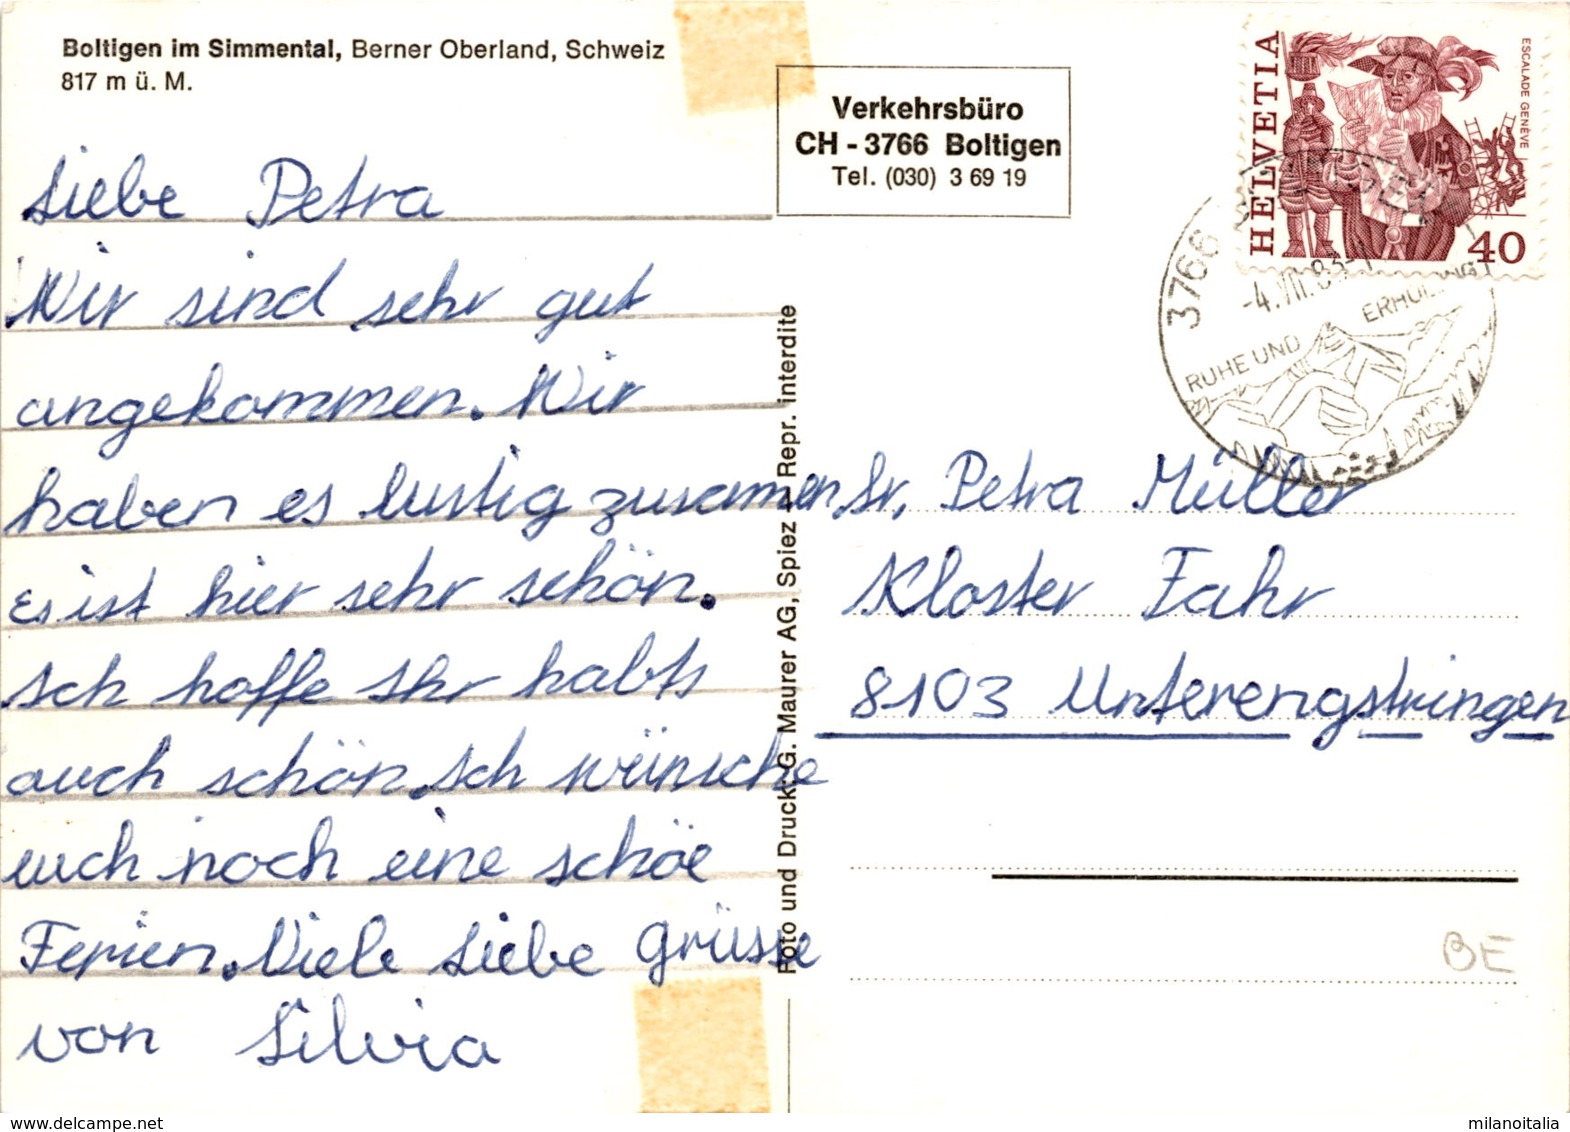 Boltigen im Simmental, Berner Oberland, Schweiz
817 m ü. M.
Verkehrsbüro
CH - 3766 Boltigen
Tel. (030) 3 69 19
HELVETIA
ESCALADE GENÈVE
40
3766
-4.VII.83-1
RUHE UND ERHOLUNG
Liebe Petra
Wir sind sehr gut
angekommen. Wir
haben es lustig zusammen
Es ist hier sehr schön.
Ich hoffe Ihr habts
auch schön. Ich wünsche
euch noch eine schöe
Ferien. Viele Liebe grüsse
von Silvia
Foto und Druck: G. Maurer AG, Spiez – Repr. interdite
Sr. Petra Müller
Kloster Fahr
8103 Unterengstringen
BE
milanoitalia